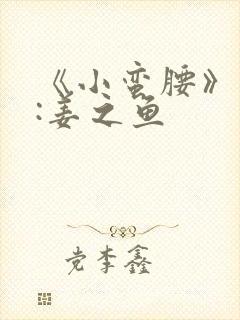 《小蛮腰》
:姜之鱼
党李鑫